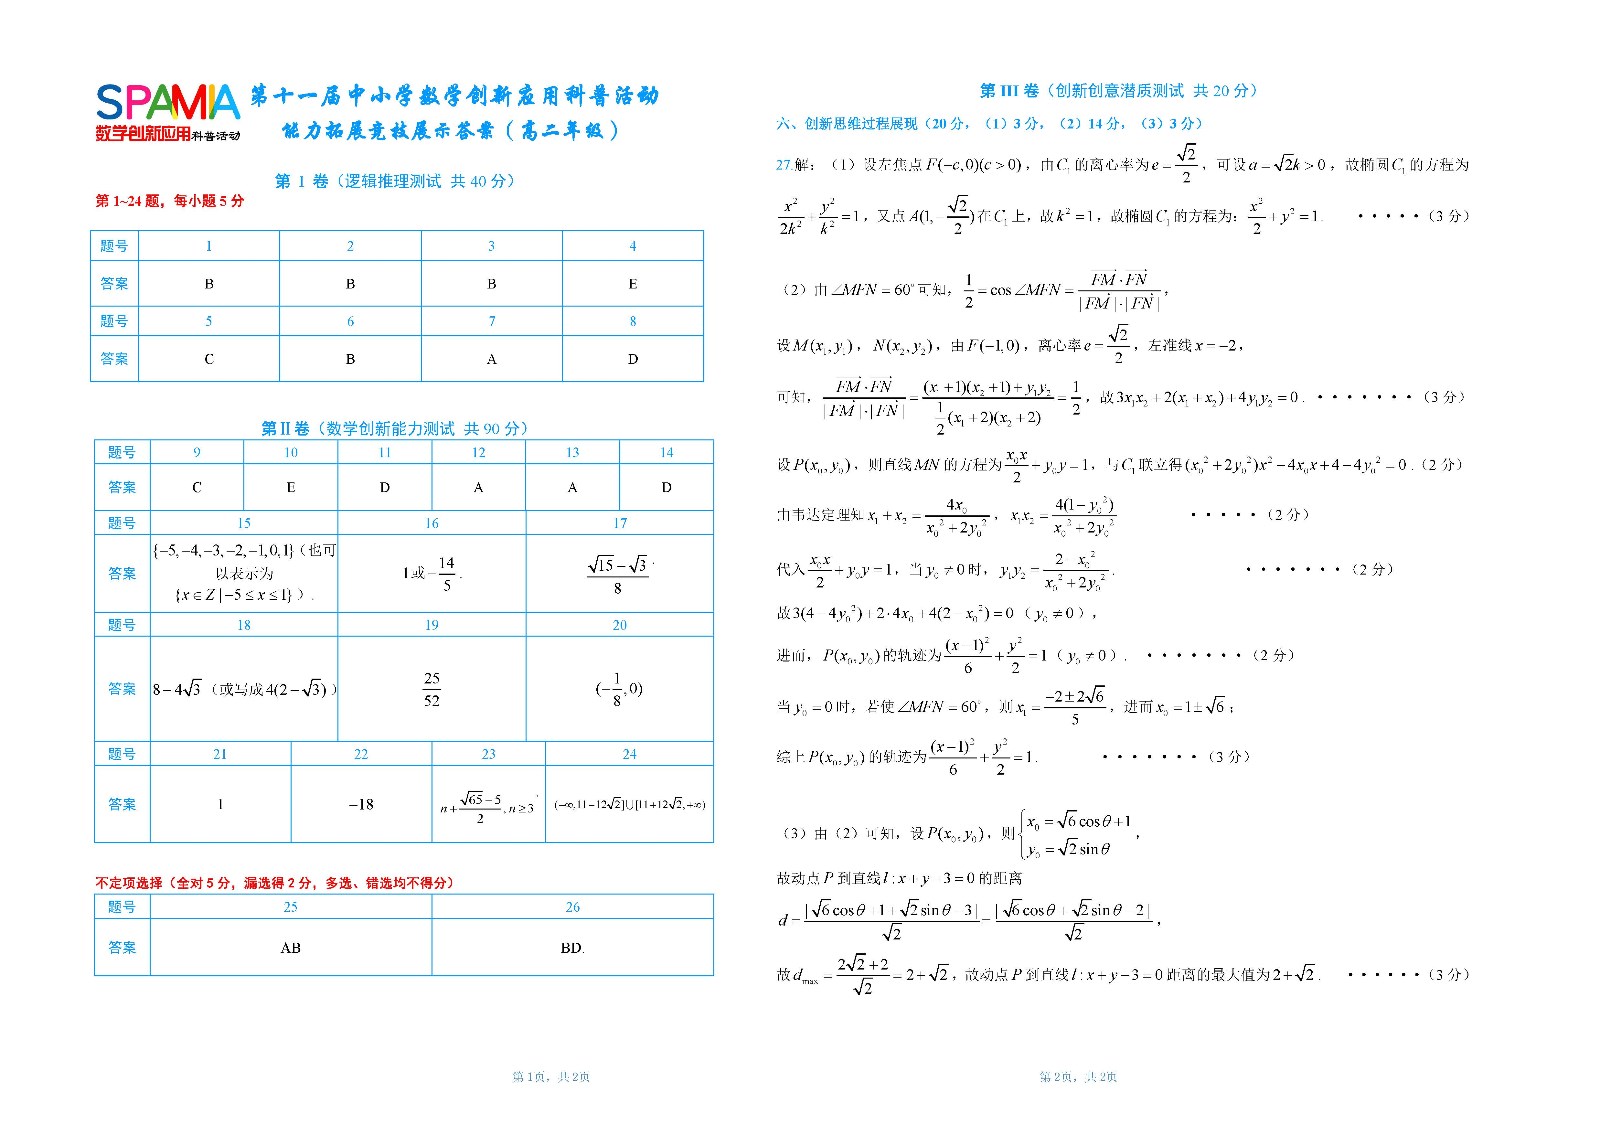 SPAMIA
数学创新应用科普活动
第十一届中小学数学创新应用科普活动
能力拓展竞技展示答案（高二年级）
第 I 卷（逻辑推理测试 共 40 分）
第 1~24 题，每小题 5 分
题号 1 2 3 4
答案 B B B E
题号 5 6 7 8
答案 C B A D
第 II 卷（数学创新能力测试 共 90 分）
题号 9 10 11 12 13 14
答案 C E D A A D
题号 15 16 17
答案 {−5,−4,−3,−2,−1,0,1}（也可以表示为 {x∈Z|−5≤x≤1}）. 1或−14/5. (√15−√3)/8.
题号 18 19 20
答案 8−4√3（或写成4(2−√3)） 25/52 (−1/8,0)
题号 21 22 23 24
答案 1 −18 n+(√65−5)/2, n≥3. (−∞,11−12√2]∪[11+12√2,+∞)
不定项选择（全对 5 分，漏选得 2 分，多选、错选均不得分）
题号 25 26
答案 AB BD.
第 1页，共 2页
第 III 卷（创新创意潜质测试 共 20 分）
六、创新思维过程展现（20 分，（1）3 分，（2）14 分，（3）3 分）
27.解：（1）设左焦点F(−c,0)(c>0)，由C₁的离心率为e=√2/2，可设a=√2k>0，故椭圆C₁的方程为
x²/2k²+y²/k²=1，又点A(1,−√2/2)在C₁上，故k²=1，故椭圆C₁的方程为：x²/2+y²=1. ·····（3 分）
（2）由∠MFN=60°可知，1/2=cos∠MFN=FM·FN/|FM|·|FN|，
设M(x₁,y₁)，N(x₂,y₂)，由F(−1,0)，离心率e=√2/2，左准线x=−2，
可知，FM·FN/|FM|·|FN|=((x₁+1)(x₂+1)+y₁y₂)/(1/2(x₁+2)(x₂+2))=1/2，故3x₁x₂+2(x₁+x₂)+4y₁y₂=0. ·······（3 分）
设P(x₀,y₀)，则直线MN的方程为x₀x/2+y₀y=1，与C₁联立得(x₀²+2y₀²)x²−4x₀x+4−4y₀²=0.（2 分）
由韦达定理知x₁+x₂=4x₀/(x₀²+2y₀²)，x₁x₂=4(1−y₀²)/(x₀²+2y₀²) ·····（2 分）
代入x₀x/2+y₀y=1，当y₀≠0时，y₁y₂=(2−x₀²)/(x₀²+2y₀²). ·······（2 分）
故3(4−4y₀²)+2·4x₀+4(2−x₀²)=0（y₀≠0），
进而，P(x₀,y₀)的轨迹为(x−1)²/6+y²/2=1（y₀≠0）. ·······（2 分）
当y₀=0时，若使∠MFN=60°，则x₁=(−2±2√6)/5，进而x₀=1±√6；
综上P(x₀,y₀)的轨迹为(x−1)²/6+y²/2=1. ·······（3 分）
（3）由（2）可知，设P(x₀,y₀)，则{x₀=√6cosθ+1
y₀=√2sinθ，
故动点P到直线l:x+y−3=0的距离
d=|√6cosθ+1+√2sinθ−3|/√2=|√6cosθ+√2sinθ−2|/√2，
故dmax=(2√2+2)/√2=2+√2，故动点P到直线l:x+y−3=0距离的最大值为2+√2. ······（3 分）
第 2页，共 2页